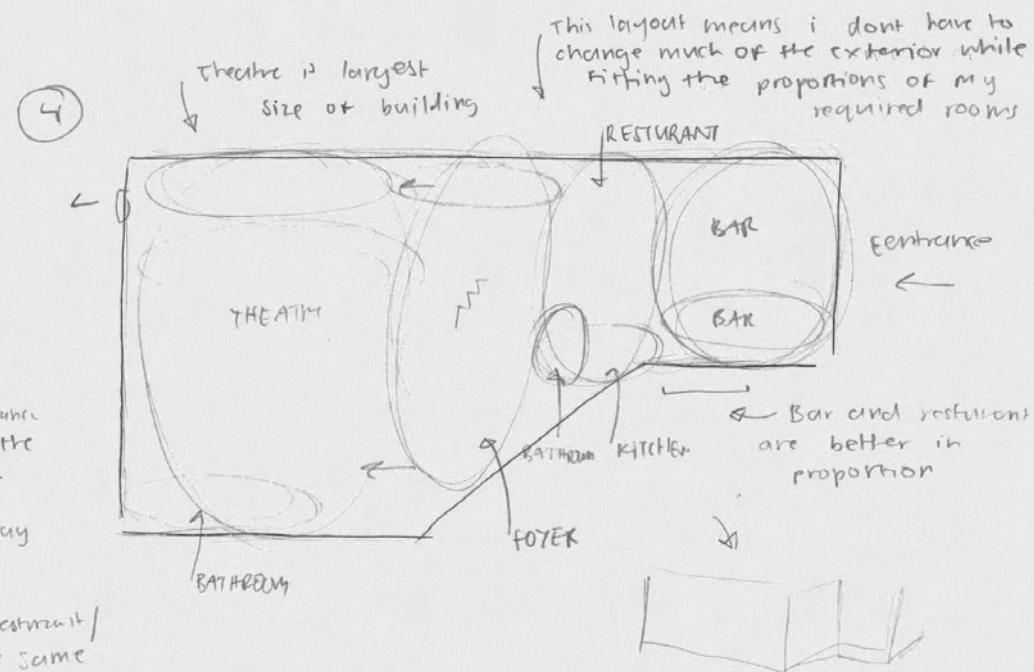 4
Theatre is largest
size of building
This layout means i dont have to
change much of the exterior while
fitting the proportions of my
required rooms
RESTURANT
BAR
BAR
Eentrance
THEATRE
the
BATHROOM KITCHEN
Bar and resturant
are better in
proportion
FOYER
BATHROOM
same